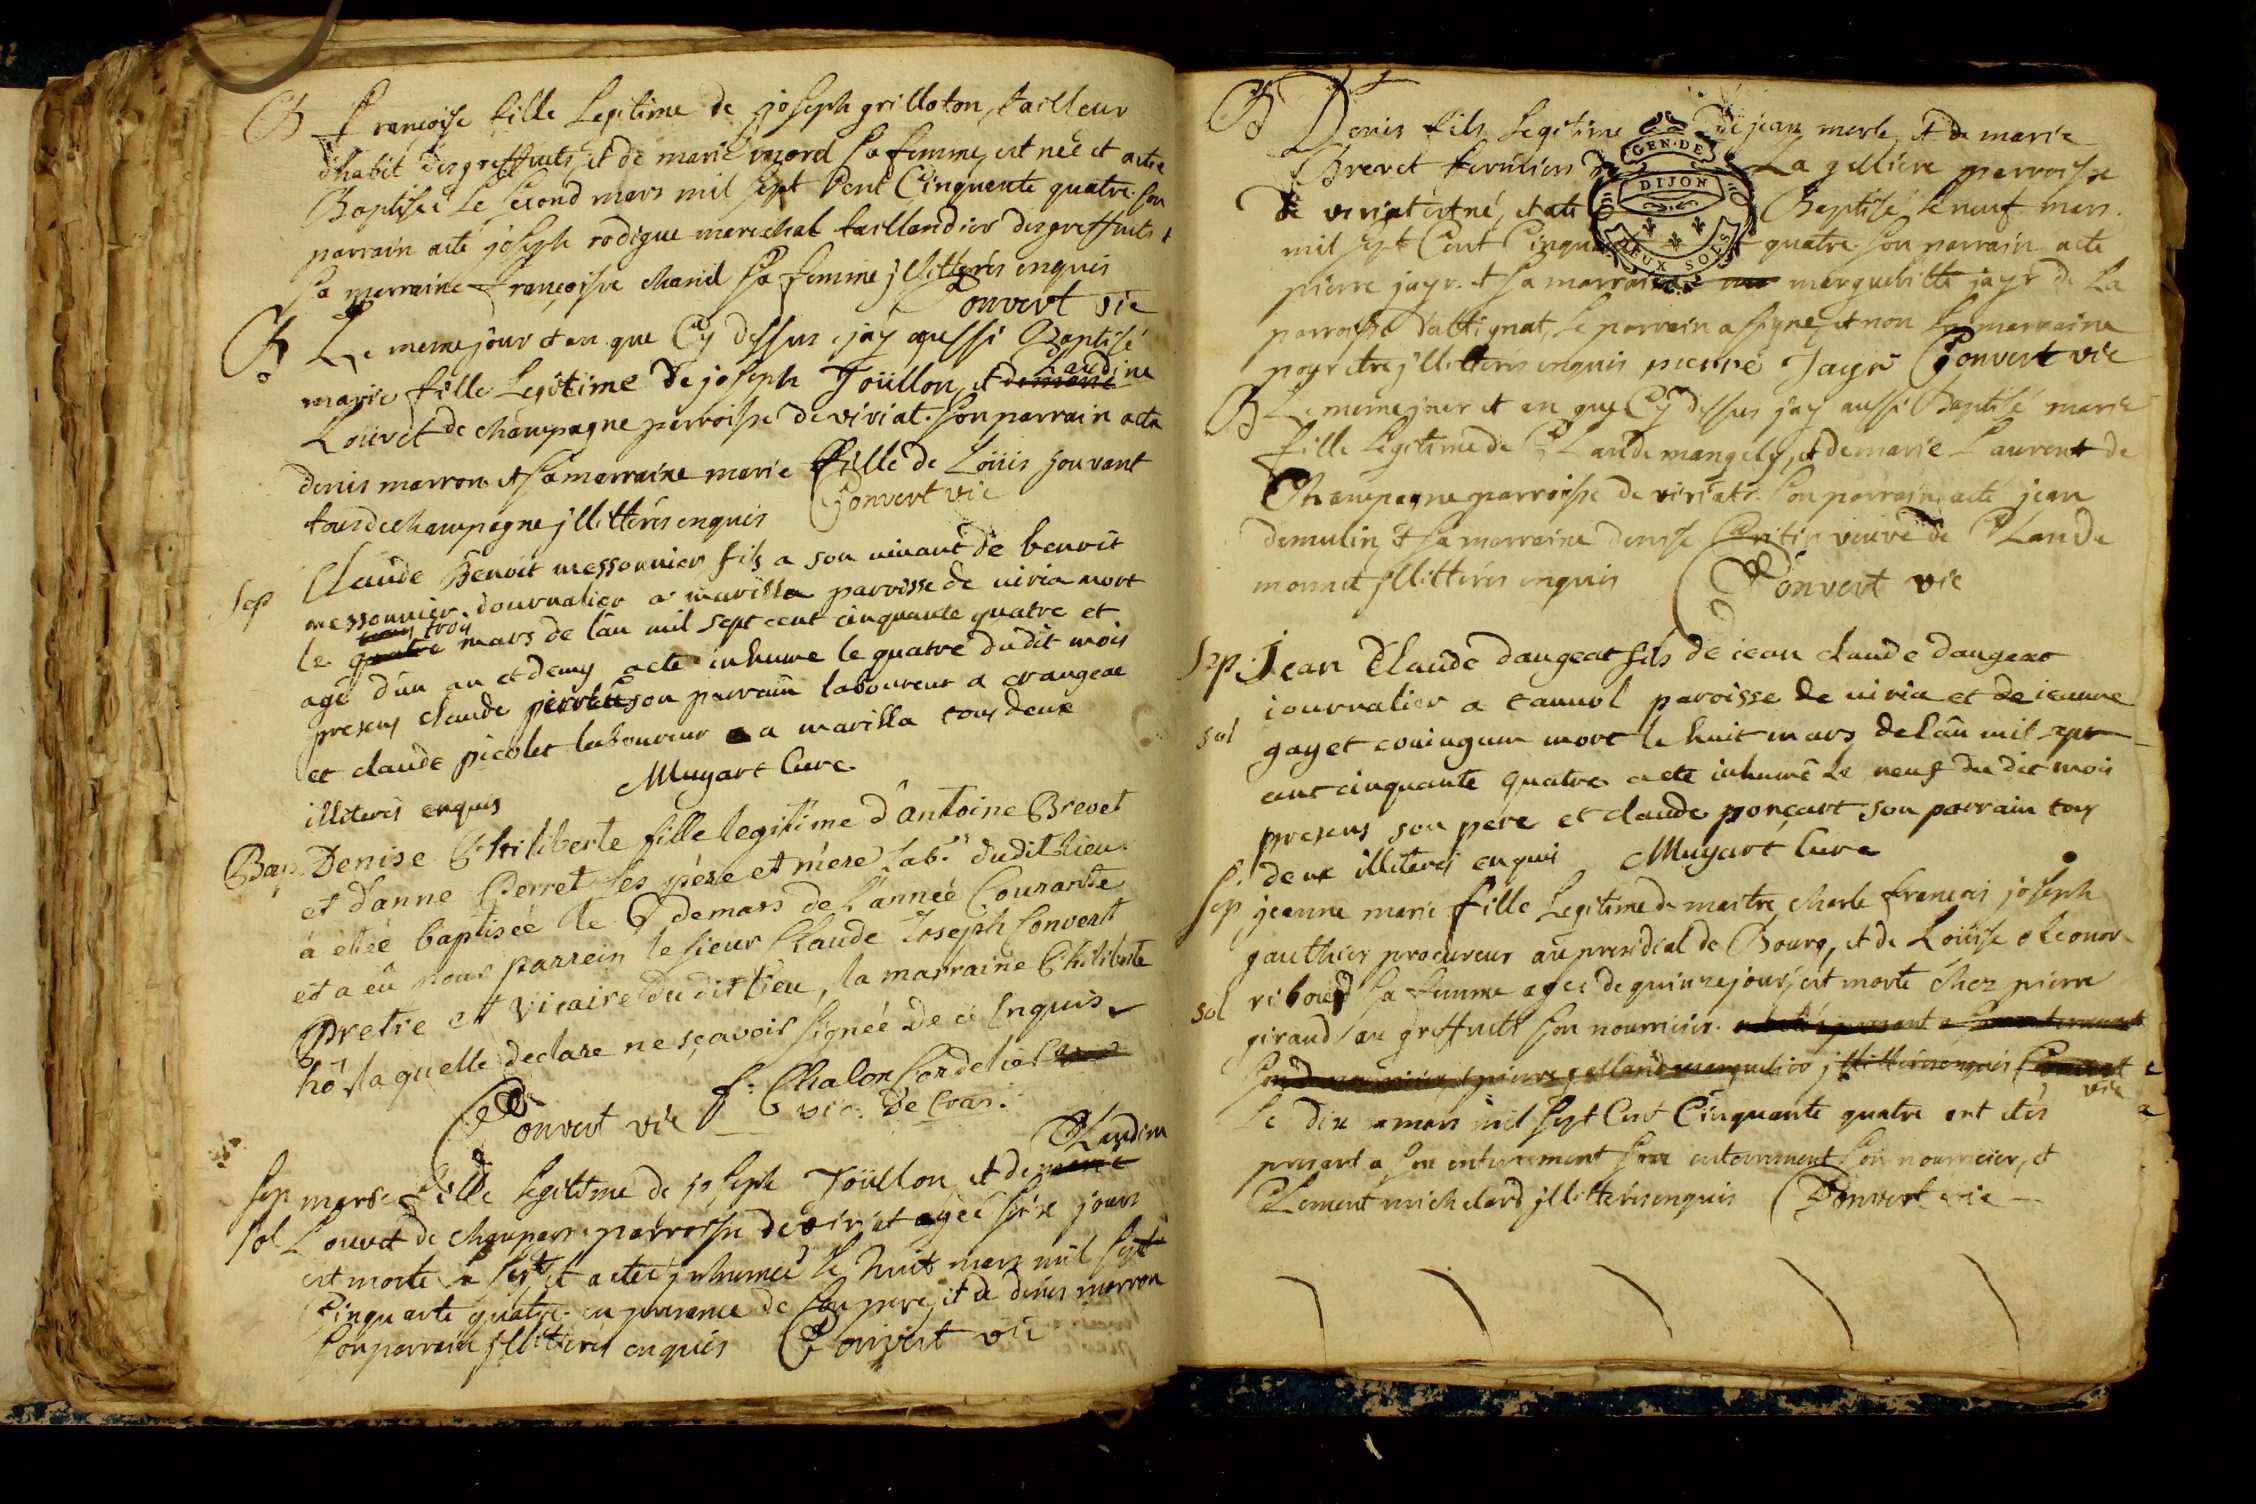 B françoise fille Legitime de joseph grilloton tailleur
dhabit des greffuits, et de marie sa femme, est neé et aeteé
Baptiseé Le second mars mil sept Cent Cinquente quatre. son
parrain aeté joseph rodigue marechal taillandier des greffuits et
sa marraine françoise chanel sa femme jllitterés enquis
Convert vic
B Le meme jour et an que Cy dessus jay aussi Baptisé
Claudine
marie fille Legitime de joseph Toüillon, et de marie
Loüvet de champagne parroisse de viriat. son parrain aeté
denis marron et sa marraine marie fille de Loüis jouvant
tous de champagne jllitterés enquis Convert vic
Sep Claude Benoit messonnier fils a son vivant de benoit
messonnier journalier a marilla paroisse de viria mort
trois
le quatre mars de lan mil sept cent cinquante quatre et
agé dun an et demy aeté inhumé le quatre dudit mois
presens claude son parrain laboureur a crangeac
et claude picolet laboureur a marilla tous deux
illiterés enquis Mugart Curé
Bap. Denise Philiberte fille legitime d'antoine Brevet
et d'anne Perret ses pére et mére lab.rs dudit lieu
à étée baptisée le 6 de mars de l'année Courante
et a eû pour parrein le sieur Claude Joseph Convert
Pretre et Vicaire du dit lieu, la marraine Philiberte
laquelle declare ne sçavoir signée de ce Enquis
f. Chalon Cordelier
Convert vic vic. De Cras.
Claudine
Sep marie fille legitime de joseph Toüillon, et de marie
sol Louvet de champagne parroisse de viriat ageé jours
est morte le sept et aeteé jnhumeé le huit mars mil sept
Cinquante quatre. en presence de son pere, et de denis marron
son parrain jllitterés enquis Convert vic
B Denis fils Legitime de jean merle, et de marie
GEN. DE
DIJON
DEUX SOLS
Brevet fermiers La geliere parroisse
de viriat est né, et aeté Baptisé le neuf mars
mil sept Cent Cinquante quatre. son parrain aeté
pierre jayr. et sa marraine margueritte jayr de La
parroisse d'attignat, le parrain a signé, et non La marraine
pour etre jllitterés enquis pierre Jayr Convert vic
B Le meme jour et an que Cy dessus jay aussi Baptisé marie
fille Legitime de Claude mangely, et de marie Laurent de
Champagne parroisse de viriat. son parrain aeté jean
demulin, et sa marraine denise veuve de Claude
monnet jllitterés enquis Convert vic
Sep. Jean Claude dangeat fils de jean claude dangeat
journalier a paroisse de viria et de jeanne
sol gayet conjoguin mort le huit mars de lan mil sept
cent cinquante quatre aeté inhumé le neuf du dit mois
presens son pere et claude ponçart son parrain tous
deux illiterés enquis Mugart Curé
Sep jeanne marie fille Legitime de maitre charle françois joseph
gauthier procureur au presidial de Bourg, et de Loüise eleonor
sol riboud sa femme agée de quinze jours est morte chez pierre
giraud au greffuits son nourricier. present a son enterrement
son nourricier, et pierre jllitterés enquis Convert
vic
Le dix mars mil sept Cent Cinquante quatre ont etés
present a son enterrement son enterrement son nourricier, et
Clement michelard jllitterés enquis Convert vic